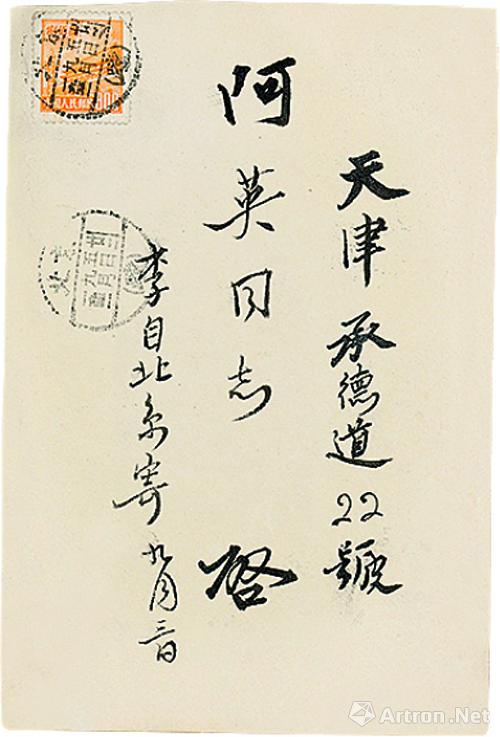 天津承德道22號
阿英同志 啓
李自北京寄 九月三日
800
Artron.Net